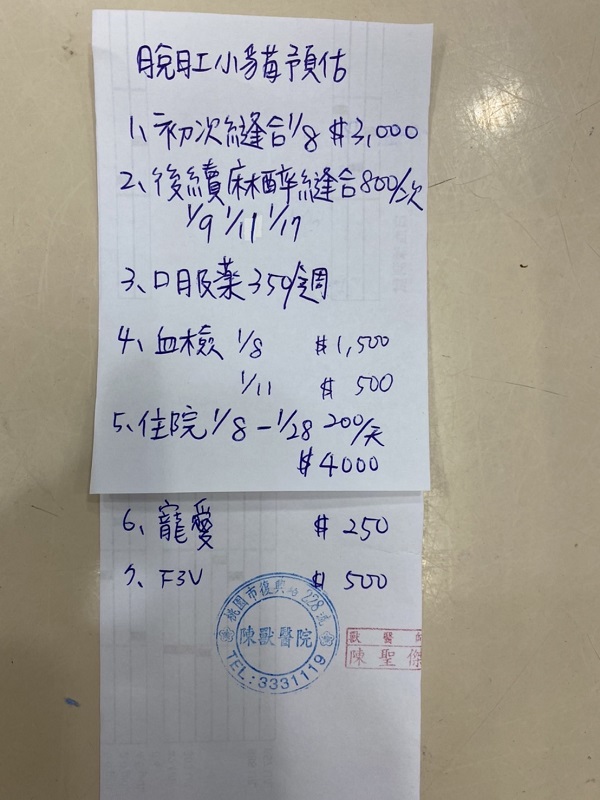 脫肛小貓預估
1、初次縫合1/8 $3,000
2、後續麻醉縫合800/次
1/9 1/11 1/17
3、口服薬350/週
4、血檢 1/8 $1,500
1/11 $ 500
5、住院1/8-1/28 200/天
$4000
6、寵愛 $ 250
7、F3V $ 500
桃園市復興路228號
陳獸醫院
TEL:3331119
獸醫師
陳聖傑